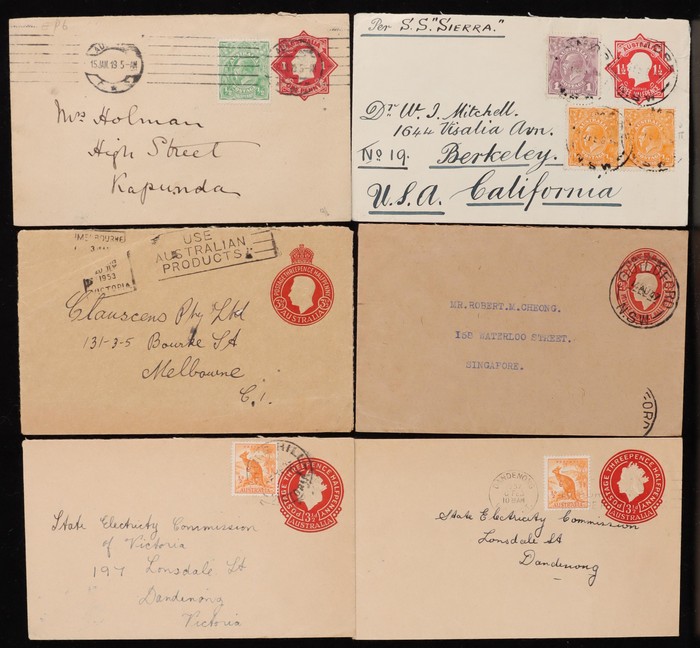 15 JAN. 19 5-AM
AUSTRALIA
1 1
ONE PENNY
½ ½
Mrs Holman
High Street
Kapunda
Per S.S. "SIERRA."
AUSTRALIA
1½ 1½
1 1
N.S.W
Dr. W. J. Mitchell.
1644 Visalia Avn.
No 19. Berkeley.
U.S.A. California
N.S.W
MELBOURNE
1953
VICTORIA
USE
AUSTRALIAN
PRODUCTS
POSTAGE THREEPENCE HALFPENNY
3½ 3½
AUSTRALIA
Clauscens Pty Ltd
131-3-5 Bourke St
Melbourne
C.1.
N.S.W
MR. ROBERT.M.CHEONG.
158 WATERLOO STREET.
SINGAPORE.
FORD
HILL
AUSTRALIA
POSTAGE THREEPENCE HALFPENNY
3½
AUSTRALIA
State Electricity Commission
of Victoria
197 Lonsdale St
Dandenong
Victoria
DANDENONG
AUSTRALIA
POSTAGE THREEPENCE HALFPENNY
3½
AUSTRALIA
State Electricity Commission
Lonsdale St
Dandenong